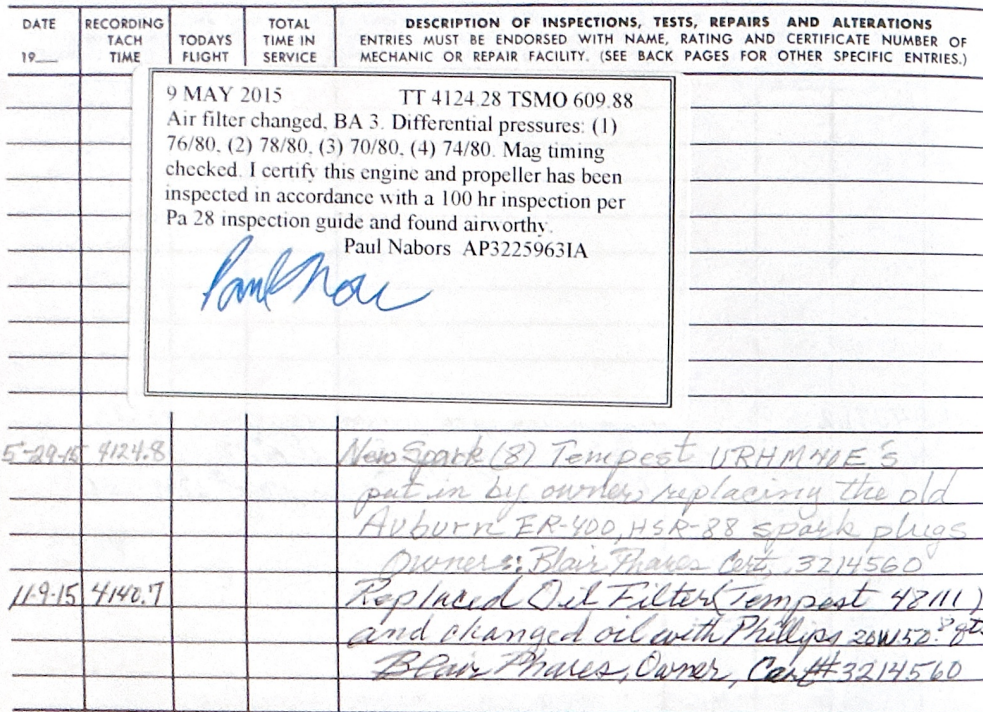 DATE
19
RECORDING
TACH
TIME
TODAYS
FLIGHT
TOTAL
TIME IN
SERVICE
DESCRIPTION OF INSPECTIONS, TESTS, REPAIRS AND ALTERATIONS
ENTRIES MUST BE ENDORSED WITH NAME, RATING AND CERTIFICATE NUMBER OF
MECHANIC OR REPAIR FACILITY. (SEE BACK PAGES FOR OTHER SPECIFIC ENTRIES.)
9 MAY 2015 TT 4124.28 TSMO 609.88
Air filter changed, BA 3. Differential pressures: (1)
76/80, (2) 78/80, (3) 70/80, (4) 74/80. Mag timing
checked. I certify this engine and propeller has been
inspected in accordance with a 100 hr inspection per
Pa 28 inspection guide and found airworthy.
Paul Nabors AP3225963IA
5-29-15 4124.8 New Spark (8) Tempest URHM40E's
put in by owner, replacing the old
Auburn ER-400, HSR-88 spark plugs
Owner: Blair Phares Cert, 3214560
11-9-15 4140.7 Replaced Oil Filter (Tempest 48111)
and changed oil with Phillips 20W50 qts
Blair Phares, Owner, Cert# 3214560